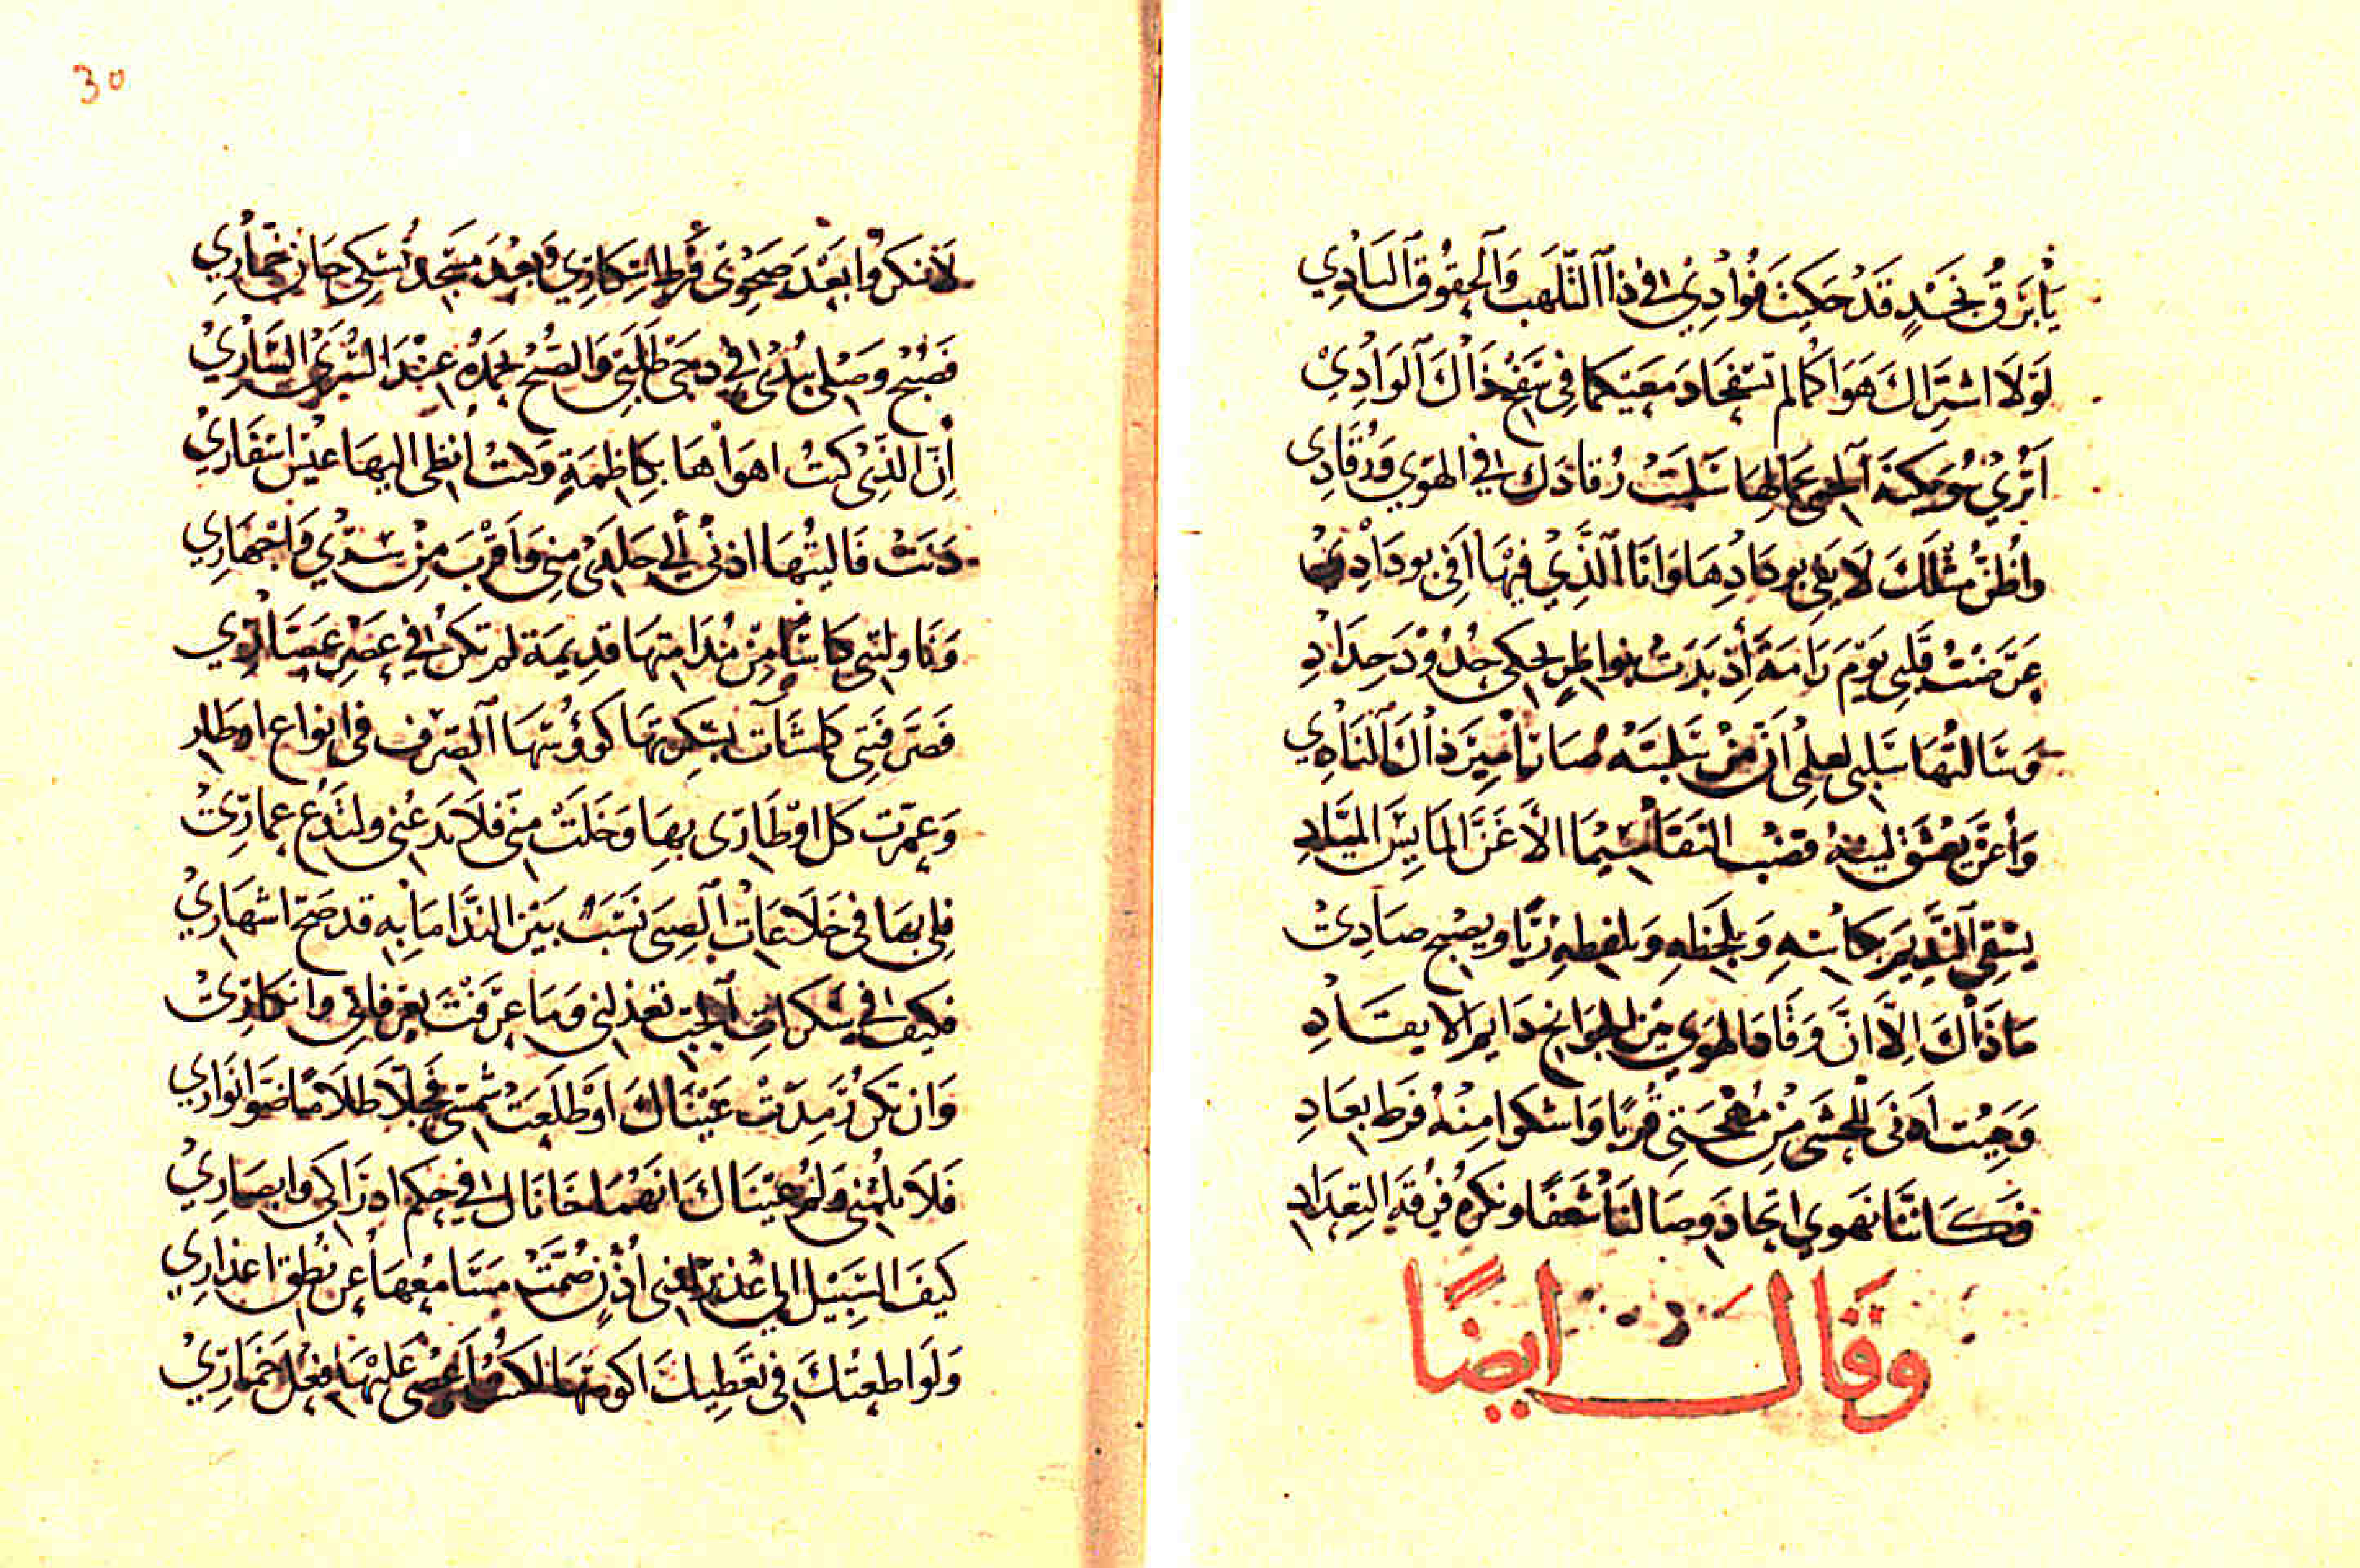 يَا بَرْقُ نَجْدٍ قَدْ حَكَيْتَ فُوَادِيْ فِي ذَا التَّلَهبِ وَالْحقُوقِ الْبَادِي
لَوْلَا اشْتِرَاكَ هَوَاكُما لم تسْفحَا دَمعَيْكما فِي سَفْحِ ذَاكَ الوَادِيْ
اَتُرِيْ مُومَكنة الحمى بجمالها سَلَبَتْ رُقادَك في الهَوي وَرُقَادِي
واَظُنُّ مثْلَكَ لَا يَفِي بودَادِهَا وَانَا الَّذِيْ فِيْهَا اَفِي بودَادِيْ
عَرَّضَتْ قَلْبِي يَوْمَ رَامَةَ أِذْ بَدَتْ بنواظرٍ تحكي حُدُوْدَ حِدَادِ
وَسَالتُهَا سَلَبِي لعلمِي اَنَّ مَنْ سَلبَتْه صَارَ مَيِّزَ ذاكَ النَادِي
وَأَعَزَّ يعْشَقُ لِينَهُ قضُب النقَا سيّمَا الاَغَنّ المَايِسَ الميَّادِ
يسْقِي النَّدِيمَ بِكَاسِهِ وَبِلَحْظِهِ وَبلفظِهِ رَيًّا ويصْبح صَادِيْ
مَا ذَاكَ اِلَّا انَّ وَقَافَ الهَوي بيْن الجوَانِح دَايرَ الايقَادِ
وَحَبيْت ادْنَى للحشَى مِنْ مُهْجَتِي قُربًا وَاشكوا مِنْهُ فَرط بعَادِ
فَكَاننَّا نَهوي اتحادَ وصَالنَا شَغَفًا ونكرهُ فُرقَة التعِدَادِ
وقال ايضًا
30
لَا تنكرُوا بَعْدَ صَحْوِيْ فَرطَ اسْكَارِي وَبَعْدَ مسْجد نُسْكِي حَانَ خمَّارِي
فَصُبْحُ وَصْلِي بَدَىْ فِي دجَى طَلَبِي وَالصُّبْحُ يحمَدُهُ عِنْدَ السُّرَى السَّارِيْ
اِنَّ الذَّيْ كنتُ اهوَاهَا بكَاظِمَةٍ وَكنتُ انظى اليهَا عيْسَ اسْفَارِيْ
دَنَتْ فَالفيتُهَا اذنى الي جَلَدِيْ مني وَاَقْرَبَ مِنْ سِرِّيْ وَاجْهَارِي
وَنَاولتني كَاسًا مِنْ مُدَامَتِهَا قدِيمَة لم تكنْ في عَصْرِ عَصَّارِي
فَصَرَّفَتنِي كاسَات بسَكرتهَا كؤُسُهَا الصِّرْف في انواع اوطَارِ
وَعمّرَت كل اوْطَارِى بهَا وَخَلَتْ منّي فَلَا تَدَعُنِي ولتدَعْ عمارِيْ
فلي بهَا في خَلَاعَاتْ الصِبَى نَسَبٌ بَيْنَ النَّدَامَا بِه قد صَحّ اشهَارِيْ
فكيفَ في سَكراتِ الحبّ تعذلني ومَا عَرَفْتَ بعرفاني وانكارِيْ
وَان تكنْ رُمِدَتْ عَيْنَاكَ اوْ طَلَعَتْ شَمْسِي فجَلَا ظَلامًا ضَوَّ انوَارِي
فَلَا تلُمْنِي وَلُمْ عَيْنَاكَ انهُمَا خَانَاكَ في حكم ادرَاكي وابصَارِيْ
كيفَ السَّبِيْل الي عُذْرٍ لمنى اُذْنٍ صُمَّتْ مسَامعُهَا عن نُطْق اعذَارِي
وَلَو اطعتكَ في تعْطِيل اكوسهَا لكنتُ اَعْصي عَلَيْهَا فعْلَ خَمّارِيْ